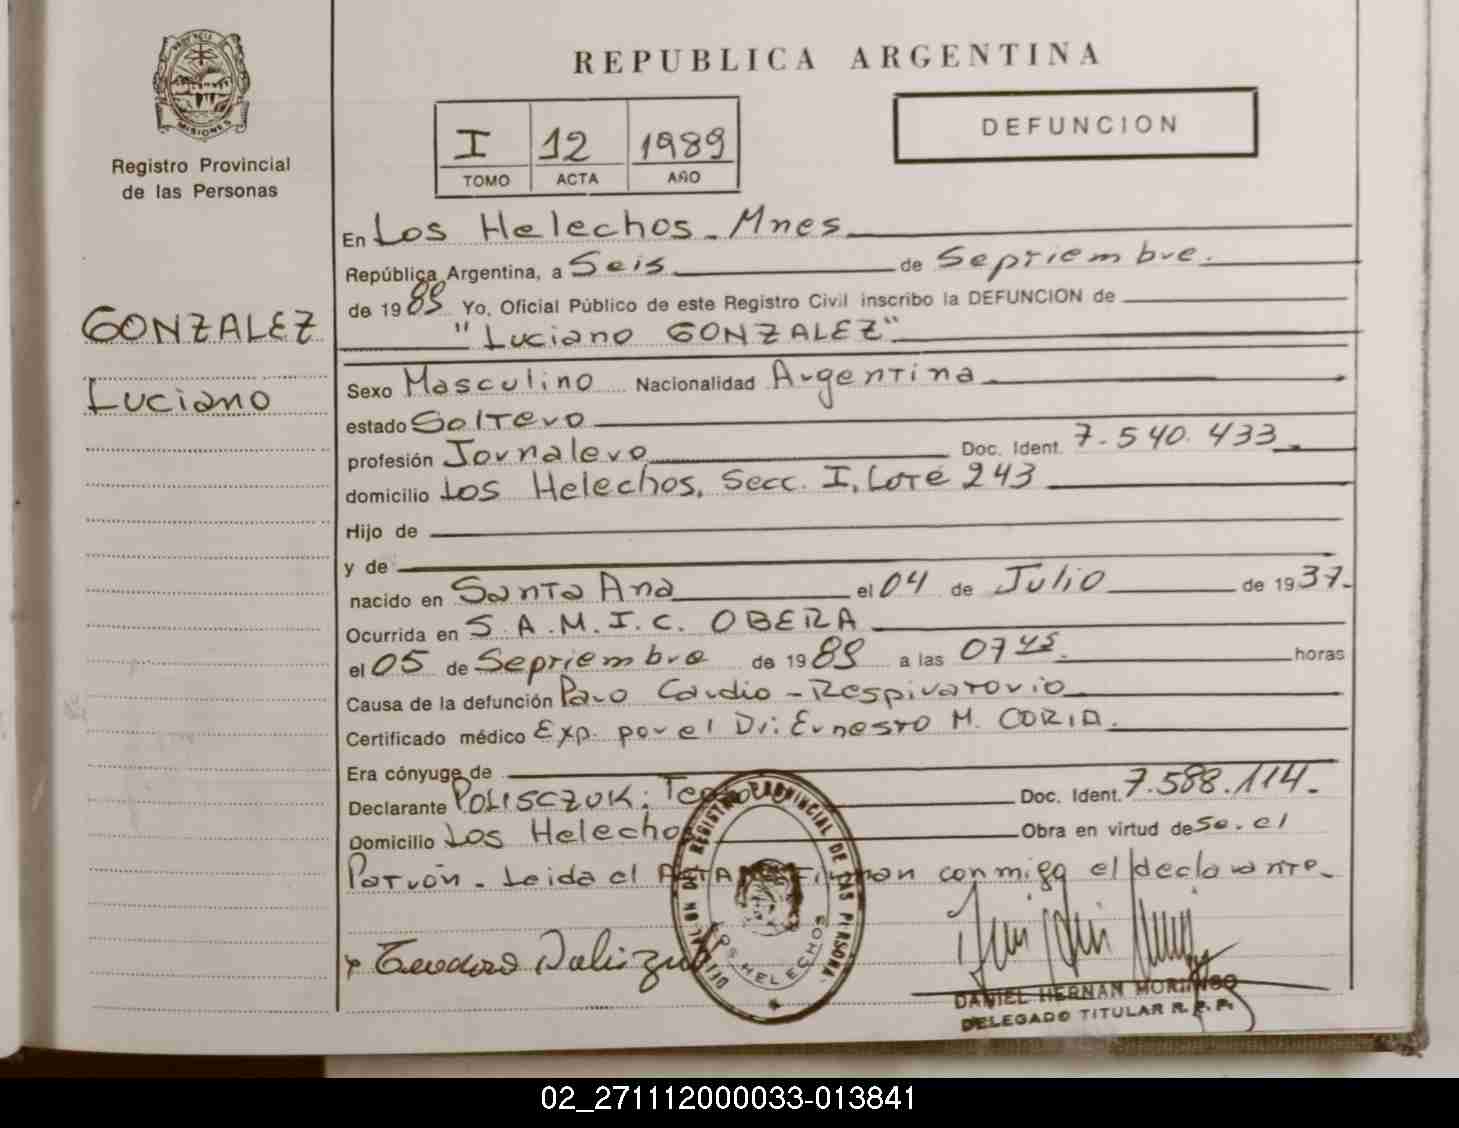 PROVINCIA DE
MISIONES
Registro Provincial
de las Personas
GONZALEZ
Luciano
REPUBLICA ARGENTINA
I 12 1989
TOMO ACTA AÑO
DEFUNCION
En Los Helechos - Mnes
República Argentina, a Seis de Septiembre.
de 1989 Yo, Oficial Público de este Registro Civil inscribo la DEFUNCION de
"Luciano GONZALEZ"
Sexo Masculino Nacionalidad Argentina
estado Soltero
profesión Jornalero Doc. Ident. 7.540.433
domicilio Los Helechos, Secc. I, Lote 243
Hijo de
y de
nacido en Santa Ana el 04 de Julio de 1937.
Ocurrida en S.A.M.I.C. OBERA
el 05 de Septiembre de 1989 a las 07 45. horas
Causa de la defunción Paro Cardio-Respiratorio
Certificado médico Exp. por el Dr: Ernesto M. CORIA.
Era cónyuge de
Declarante POLISCZUK; Teodoro Doc. Ident. 7.588.114.
Domicilio Los Helechos Obra en virtud de Se. el
Patrón. Leida el ACTA Firman conmigo el declarante.
Teodoro
DEL REGISTRO PROVINCIAL DE LAS PERSONAS
LOS HELECHOS
DANIEL HERNAN
DELEGADO TITULAR R. P. P.
02_271112000033-013841